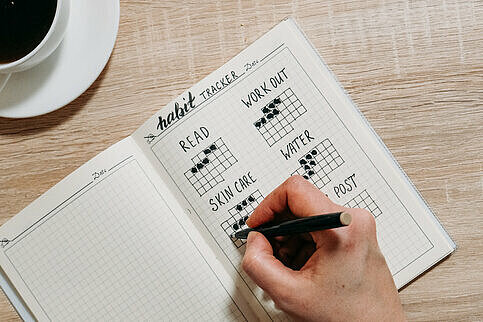 Date
habit TRACKER Date
READ
WORK OUT
SKIN CARE
WATER
POST